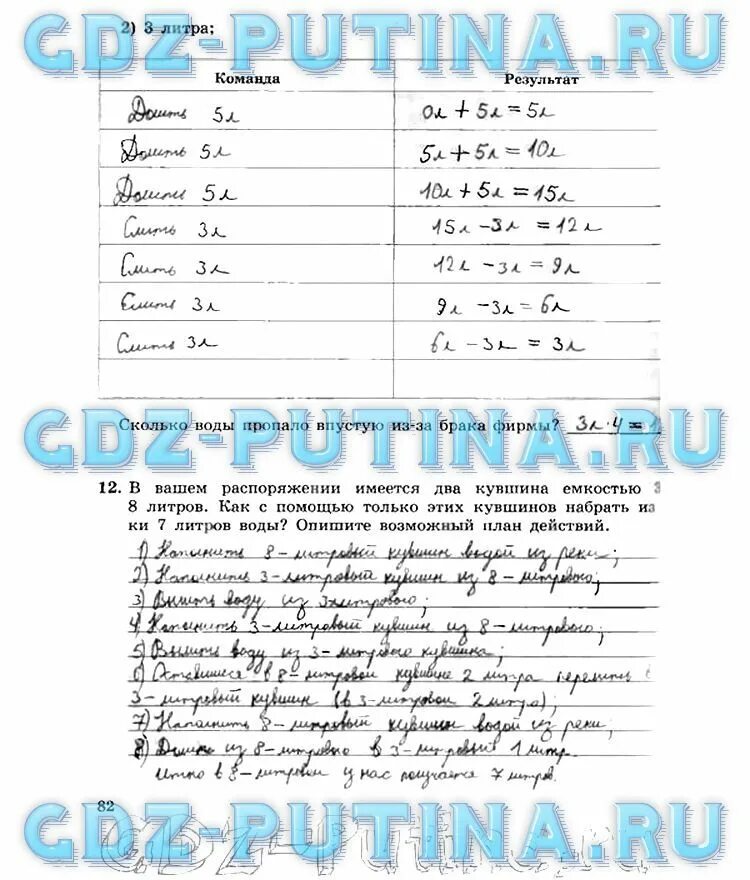 2) 3 литра;
GDZ-PUTINA.RU
Команда Результат
Долить 5л 0л + 5л = 5л
Долить 5л 5л + 5л = 10л
Долить 5л 10л + 5л = 15л
Слить 3л 15л - 3л = 12л
Слить 3л 12л - 3л = 9л
Слить 3л 9л - 3л = 6л
Слить 3л 6л - 3л = 3л
GDZ-PUTINA.RU
Сколько воды пропало впустую из-за брака фирмы? 3л·4 = 1
12. В вашем распоряжении имеется два кувшина емкостью 3
8 литров. Как с помощью только этих кувшинов набрать из
ки 7 литров воды? Опишите возможный план действий.
1) Наполнить 8-литровый кувшин водой из реки;
2) Наполнить 3-литровый кувшин из 8-литрового;
3) Вылить воду из 3литрового;
4) Наполнить 3-литровый кувшин из 8-литрового;
5) Вылить воду из 3-литрового кувшина;
6) Оставшиеся в 8-литровом кувшине 2 литра перелить в
3-литровый кувшин (в 3-литровом 2 литра);
7) Наполнить 8-литровый кувшин водой из реки;
8) Долить из 8-литрового в 3-литровый 1 литр.
Итого в 8-литровом у нас получается 7 литров.
82
GDZ-PUTINA.RU